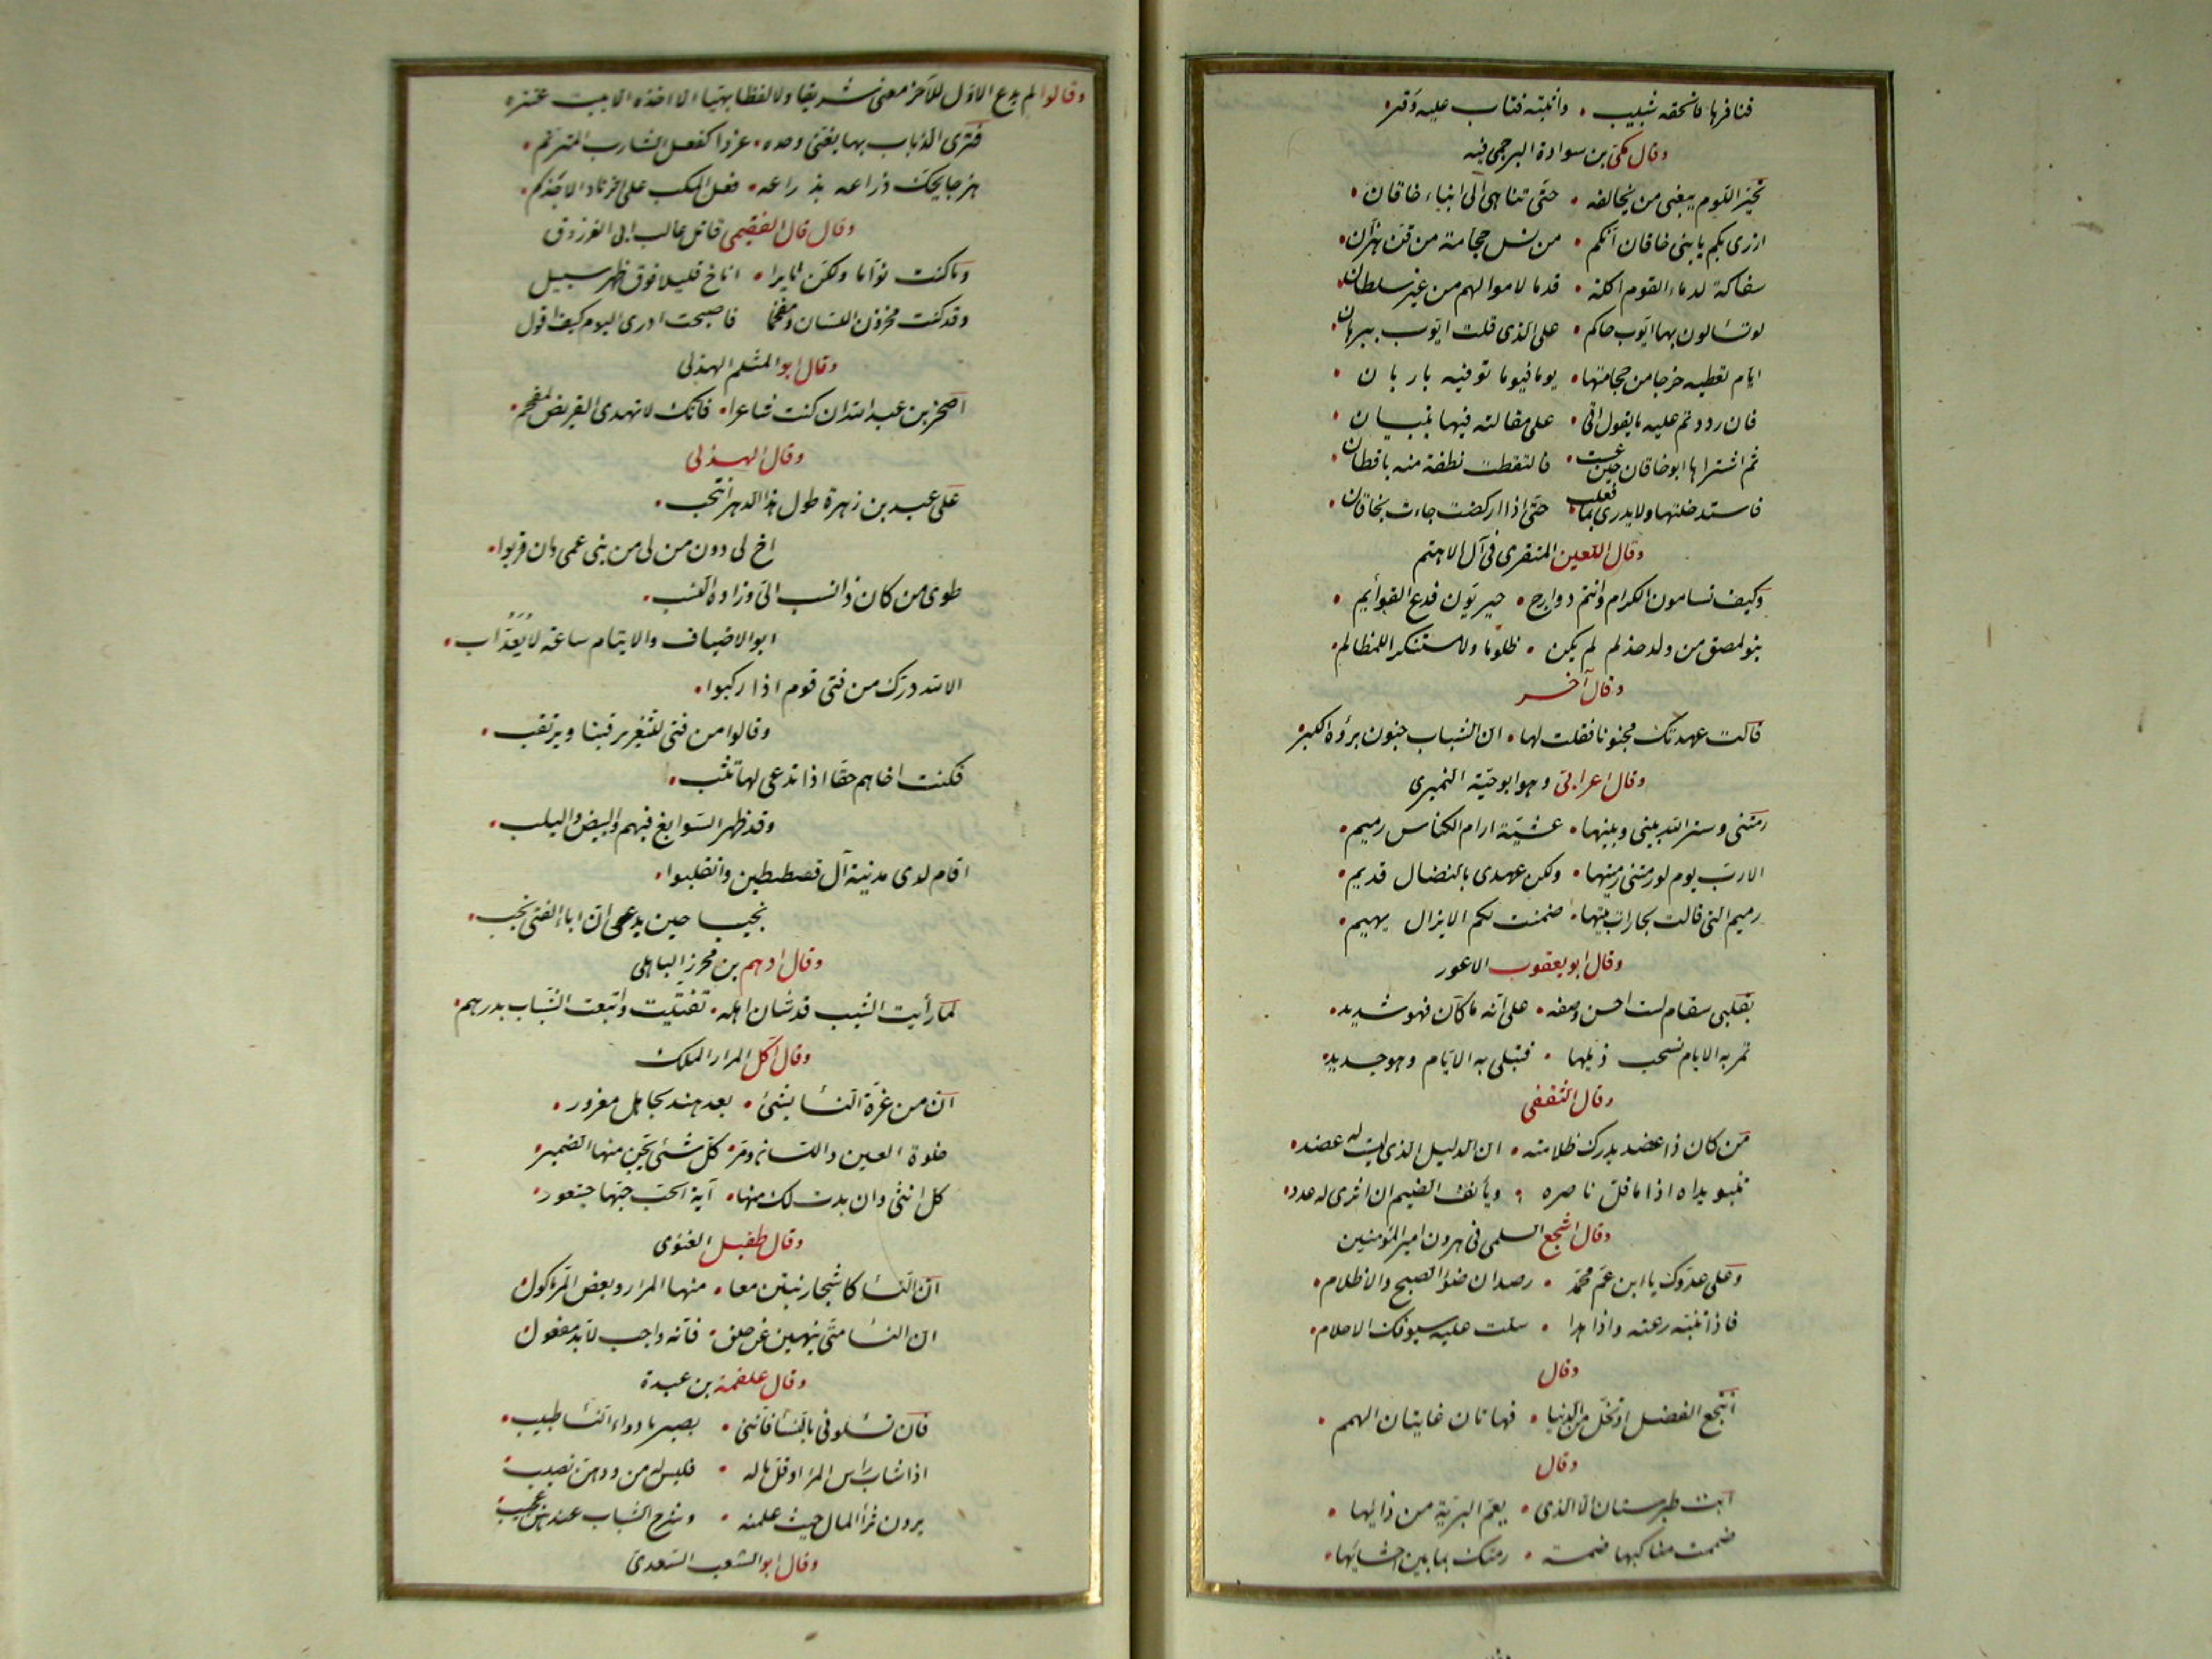 فنافرها فالحقه شبيب • واثبته فتاب عليه وقر•
وقال مكي بن سوادة البرجمي فيه
تحيّر اللوم يبغى من يحالفه • حتّى تناهى الى ابناء خاقان •
ازرى بكم يا بنى خاقان انّكم • من نسل حجّامة من قنّ هزّان•
سفاكة لدماء القوم اكلة • قدما لاموالهم من غير سلطان•
لو تسألون بها ايّوب حاكم • على الذى قلت ايّوب ببرهان•
ايام تعطيه خرجا من حجامتها• يوما فيوما توفيه باربان •
فان رددتم عليه ما يقول اتى • على مقالته فيها بتبيان •
ثم اشتراها ابو خاقان حين عست • فالتقطت نطفة منه باقطان •
فاستدخلتها ولا يدرى بما فعلت • حتّى اذا اركضت جاءت بخاقان •
وقال اللعين المنقرى فى آل الاهتم
وكيف تسامون الكرام وانتم دوارج • حيريّون فدع القوائم •
بنو لمصق من ولد حذلم لم يكن • ظلوما ولا مستنكرا للمظالم•
وقال آخر
قالت عهدتك مجنونا فقلت لها• ان الشباب جنون برؤه الكبر•
وقال اعرابى وهو ابو حيّة النميرى
رمتنى وستر الله بينى وبينها• عشيّة ارام الكناس رميم•
الا ربّ يوم لو رمتنى رميتها• ولكن عهدى بالنضال قديم•
رميم التى قالت لجارات بيتها• ضمنت لكم الا يزال يهيم•
وقال ابو يعقوب الاعور
بقلبى سقام لست احسن وصفه• على انّه ما كان فهو شديد•
تمر به الايام تسحب ذيلها • فتبلى به الايّام وهو جديد•
وقال الثقفى
من كان ذا عضد يدرك ظلامته• ان الذليل الذى ليست له عضد•
تنبو يداه اذا ما قلّ ناصره • ويأنف الضيم ان اثرى له عدد•
وقال اشجع السلمى فى هرون امير المؤمنين
وعلى عدوّك يا ابن عمّ محمّد • رصدان ضوء الصبح والاظلام•
فاذا تنبّه رعته واذا هدا • سلّت عليه سيوفك الاحلام•
وقال
انتجع الفضل او تخلّ من الدنيا • فهاتان غايتان الهمم •
وقال
ابت طبرستان الّا الذى • يعمّ البريّة من دائها •
ضممت مناكبها ضمة • رمتك بما بين احشائها•
وقالوا لم يدع الاوّل للآخر معنى شريفا ولا لفظا بهيّا الا اخذه الا بيت عنتره
فترى الذباب بها يغنّى وحده• غردا كفعل الشارب المترنّم•
هزجا يحكّ ذراعه بذراعه• فعل المكب على الزناد الاجذم•
وقال قال الفقيمى قاتل غالب ابى الفرزدق
وما كنت نوّاما ولكن ثايرا • اناخ قليلا فوق ظهر سبيل
وقد كنت مخزون اللسان ومفحما فاصبحت ادرى اليوم كيف اقول
وقال ابو المثلم الهذلى
اصخر بن عبد الله ان كنت شاعرا• فانّك لا تهدى القريض لمفحم•
وقال الهذلى
على عبد بن زهرة طول هذا الدهر انتحب •
اخ لى دون من لى من بنى عمى وان قربوا•
طوى من كان ذا نسب الىّ وزاده النسب•
ابو الاضياف والايتام ساعة لا يعدّ اب •
الا لله درّك من فتى قوم اذا ركبوا•
وقالوا من فتى للثغر يرقبنا ويرتقب •
فكنت اخاهم حقا اذا تدعى لها تثب•
وقد ظهر السّوابغ فيهم والبيض واليلب•
اقام لدى مدينة آل قصطنطين وانقلبوا•
نجيبا حين يدعى انّ اباء الفتى نجب•
وقال ادهم بن محرز الباهلى
لما رأيت الشيب قد شان اهله• تفتّيت وابتعت الشّباب بدرهم•
وقال آكل المرار الملك
انّ من غرّه النسأ بشئ • بعد هند لجاهل مغرور •
حلوة العين واللسان ومرّ• كلّ شئ يجن منها الضمير•
كل انثى وان بدت لك منها• آية الحبّ حبّها خيتعور•
وقال طفيل الغنوى
انّ النسأ كاشجار نبتن معا• منها المرار وبعض المرّ مأكول•
ان النسأ متى ينهين عن خلق• فانّه واجب لا بد مفعول•
وقال علقمة بن عبدة
فان تسألونى بالنسأ فانّنى • بصير بادواء النسأ طبيب•
اذا شاب رأس المرأ او قلّ ماله • فليس له من ودهن نصيب•
يردن ثرأ المال حيث علمنه • وشرخ الشباب عندهن عجيب•
وقال ابو الشغب السّعدى